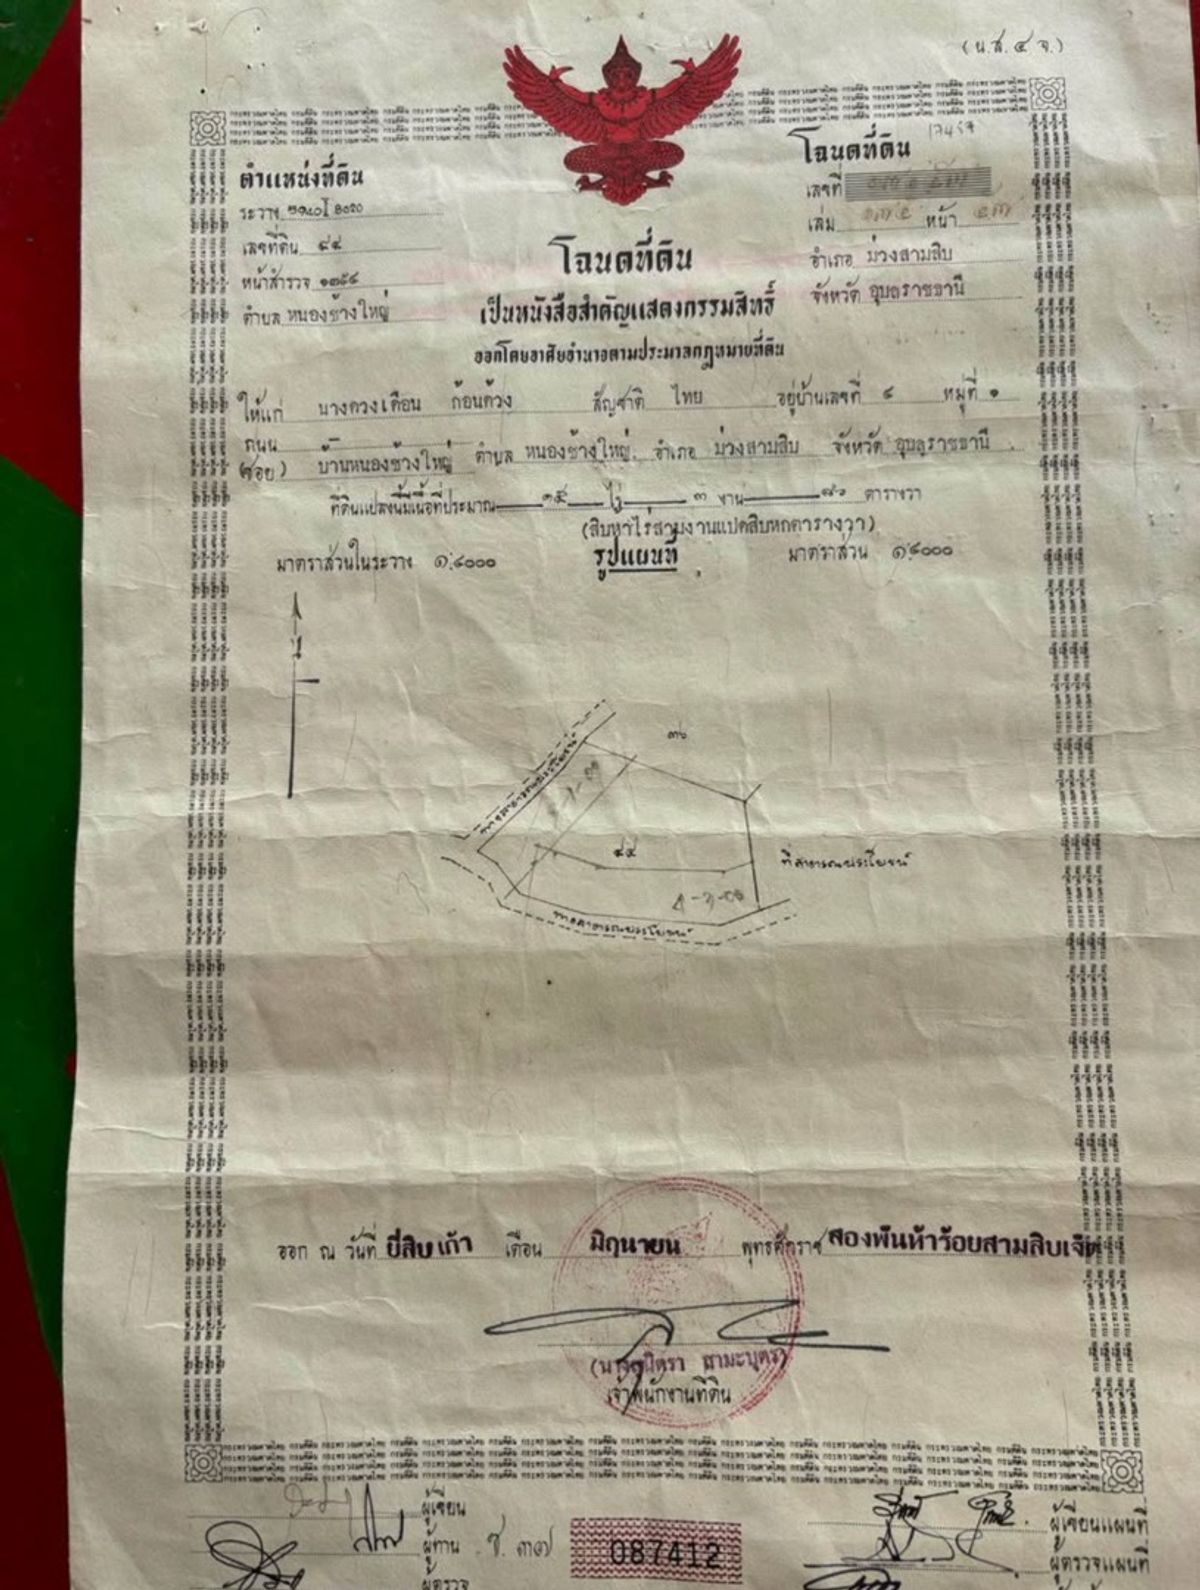 (น.ส. ๔ จ.)
โฉนดที่ดิน
เลขที่
เล่ม หน้า
อำเภอ ม่วงสามสิบ
จังหวัด อุบลราชธานี
ตำแหน่งที่ดิน
ระวาง
เลขที่ดิน ๔๔
หน้าสำรวจ
ตำบล หนองช้างใหญ่
โฉนดที่ดิน
เป็นหนังสือสำคัญแสดงกรรมสิทธิ์
ออกโดยอาศัยอำนาจตามประมวลกฎหมายที่ดิน
ให้แก่ นางดวงเดือน ก้อนด้วง สัญชาติ ไทย อยู่บ้านเลขที่ หมู่ที่ ๑
ถนน
(ซอย) บ้านหนองช้างใหญ่ ตำบล หนองช้างใหญ่ อำเภอ ม่วงสามสิบ จังหวัด อุบลราชธานี
ที่ดินแปลงนี้มีเนื้อที่ประมาณ ๑๕ ไร่ ๓ งาน ๘๖ ตารางวา
(สิบห้าไร่สามงานแปดสิบหกตารางวา)
รูปแผนที่
มาตราส่วนในระวาง ๑:๔๐๐๐
มาตราส่วน ๑:๔๐๐๐
น
ทางสาธารณประโยชน์
๔๔
ที่สาธารณประโยชน์
ทางสาธารณประโยชน์
ออก ณ วันที่ ยี่สิบเก้า เดือน มิถุนายน พุทธศักราช สองพันห้าร้อยสามสิบเจ็ด
สามะบุตร)
เจ้าพนักงานที่ดิน
ผู้เขียน
ผู้ทาน
ผู้ตรวจ
087412
ผู้เขียนแผนที่
ผู้ตรวจแผนที่